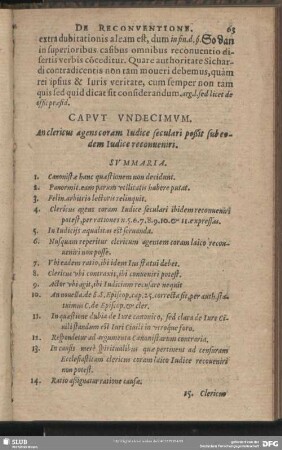 DE RECONVENTIONE. 65
extra dubitationis aleam est, dum in fin.d.§. So dan
in superioribus casibus omnibus reconuentio di-
sertis verbis cōceditur. Quare authoritate Sichar-
di contradicentis non tam moueri debemus, quàm
rei ipsius & Iuris veritate, cum semper non tam
quis sed quid dicat sit considerandum. arg.l. sed licet de
offic præsid.
CAPVT VNDECIMVM.
An clericus agens coram Iudice seculari possit sub eo-
dem Iudice reconueniri.
SVMMARIA.
1. Canonistæ hanc quæstionem non decidunt.
2. Panormit. eam parum vtilitatis habere putat.
3. Felin. arbitrio lectoris relinquit.
4. Clericus agens coram Iudice seculari ibidem reconueniri
potest, per rationes n. 5. 6. 7. 8. 9. 10. & 11. expressas.
5. In Iudicijs æqualitas est seruanda.
6. Nusquam reperitur clericum agentem coram laico recon-
ueniri non posse.
7. Vbi eadem ratio, ibi idem Ius statui debet.
8. Clericus vbi contraxit, ibi conueniri potest.
9. Actor vbi agit, ibi Iudicium recusare nequit
10. An nouella. de SS. Episcop. cap. 25. correcta sit, per auth. sta-
tuimus C. de Episcop. & cler.
11. In quæstione dubia de Iure canonico, sed clara de Iure Ci-
uili standum est Iuri Ciuili in vtroque foro.
12. Respondetur ad argumenta Canonistarum contraria.
13. In causis merè spiritualibus quæ pertinent ad censuram
Ecclesiasticam clericus coram laico Iudice reconueniri
non potest.
14. Ratio assignatur ratione causæ.
15. Clericus
SLUB
DFG